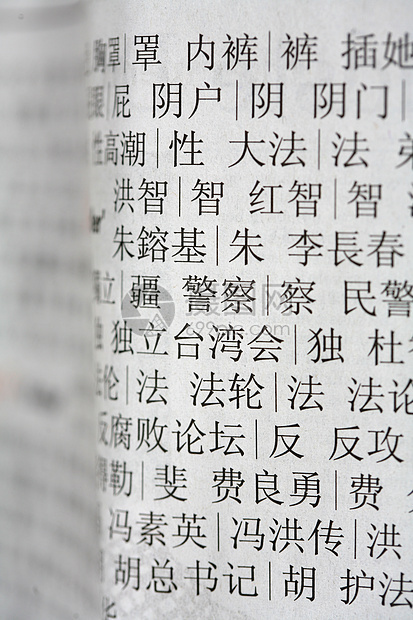 胸罩|罩 内裤|裤 插她
屁 阴户|阴 阴门|
性高潮|性 大法|法 弟
洪智|智 红智|智
朱鎔基|朱 李長春
立|疆 警察|察 民警
独立台湾会|独 杜
法伦|法 法轮|法 法论
反腐败论坛|反 反攻
勒|斐 费良勇|费
冯素英|冯洪传|洪
胡总书记|胡 护法